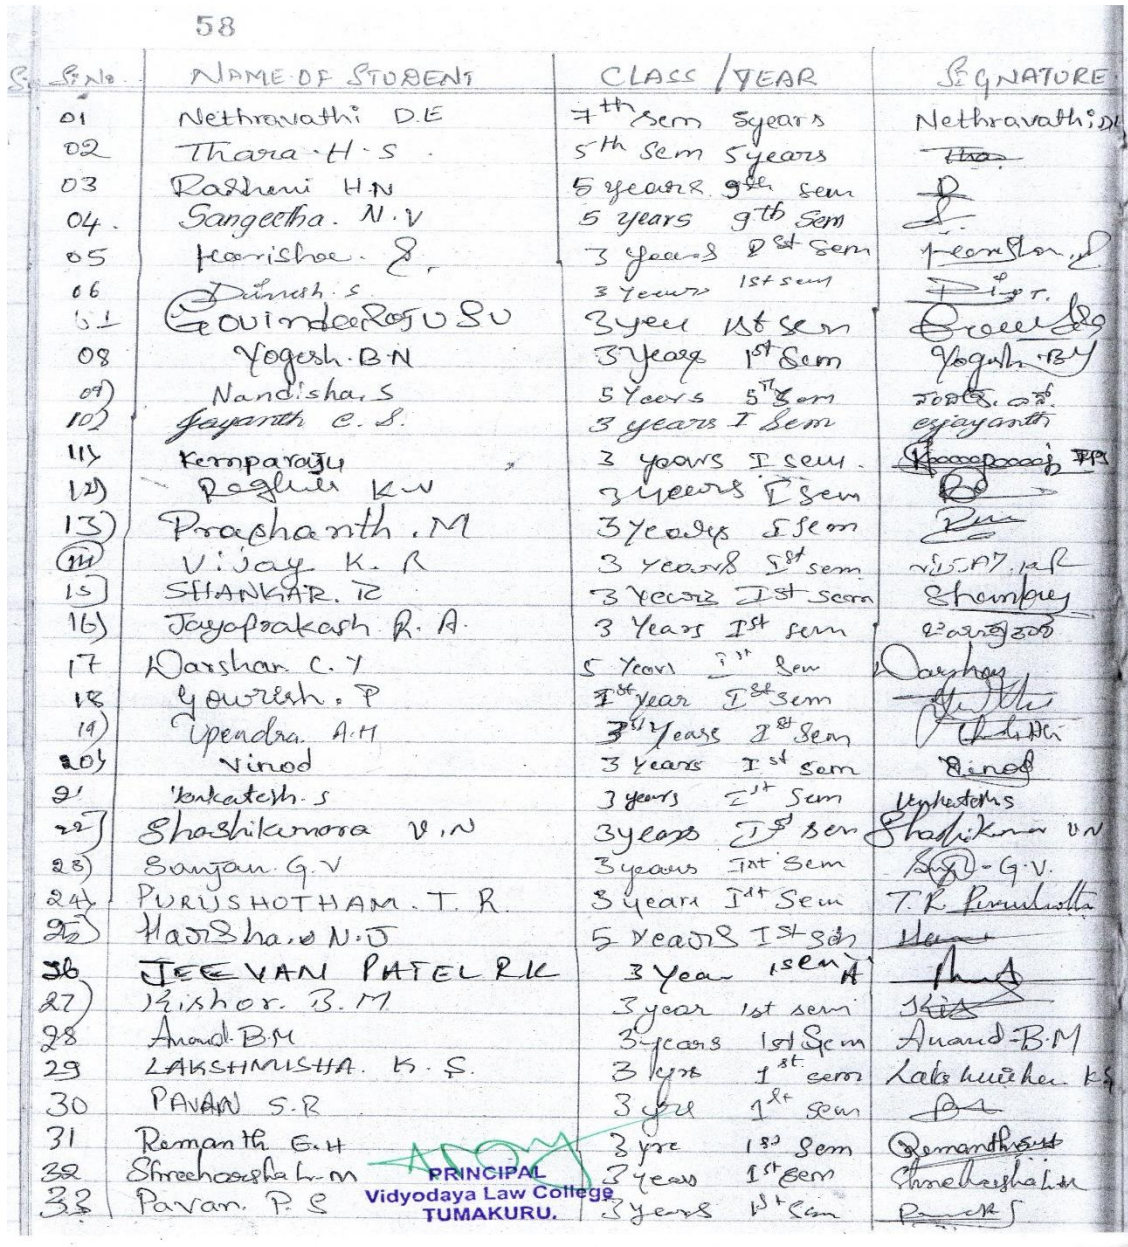 58
Sl.No. NAME OF STUDENT CLASS / YEAR SIGNATURE
01 Nethravathi D.E 7th sem 5years Nethravathi DE
02 Thara.H.S. 5th Sem 5years
03 Rashmi H.N 5 years 9th sem
04. Sangeetha. N.V 5 years 9th Sem
05 Harisha. S. 3 years Ist Sem
06 Dinesh. S 3 Years 1st sem
Govindaraju SV 3 year 1st sem
08 Yogesh.B.N 3 Years 1st Sem Yogesh.BN
09) Nandisha.S 5 Years 5th Sem
10) Jayanth C.S. 3 years I Sem csjayanth
11) Kemparaju 3 years I sem.
12) Raghu K.N 3 years I sem
13) Prashanth.M 3 Years I sem
14 Vijay K.R 3 Years Ist sem
15) SHANKAR. R 3 Years Ist sem
16) Jayaprakash. R. A. 3 Years Ist sem
17 Darshan. C. Y 5 Years Ist Sem
18 Gowresh. P Ist year Ist sem
19) Upendra. A.H 3 Years Ist Sem
20) Vinod 3 Years Ist Sem Vinod
21 Venkatesh.S 3 years Ist Sem Venkatesh S
22) Shashikumara V.N 3years Ist sem Shashikumar VN
23) Sanjan.G.V 3 years Ist Sem G.V.
24) PURUSHOTHAM. T. R. 3 years Ist Sem T.R.
25) Harsha. N.J 5 Years Ist Sem
26 JEEVAN PATEL RK 3 Year 1sem A
27) Kishor. B.M 3 year 1st sem
28 Anand.B.M 3 years 1st Sem Anand-B.M
29 LAKSHMISHA. K. S. 3 yrs 1st sem
30 PAVAN S.R 3 yrs 1st sem
31 Remanth G.H 3 yrs 1st Sem
32 Shreeharsha L.M 3 years Ist Sem
33 Pavan. P. S 3 years Ist Sem
PRINCIPAL
Vidyodaya Law College
TUMAKURU.